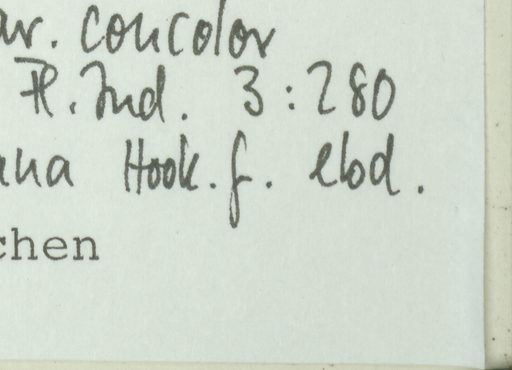 ar. concolor
Fl. Ind. 3:280
ana Hook. f. ebd.
chen